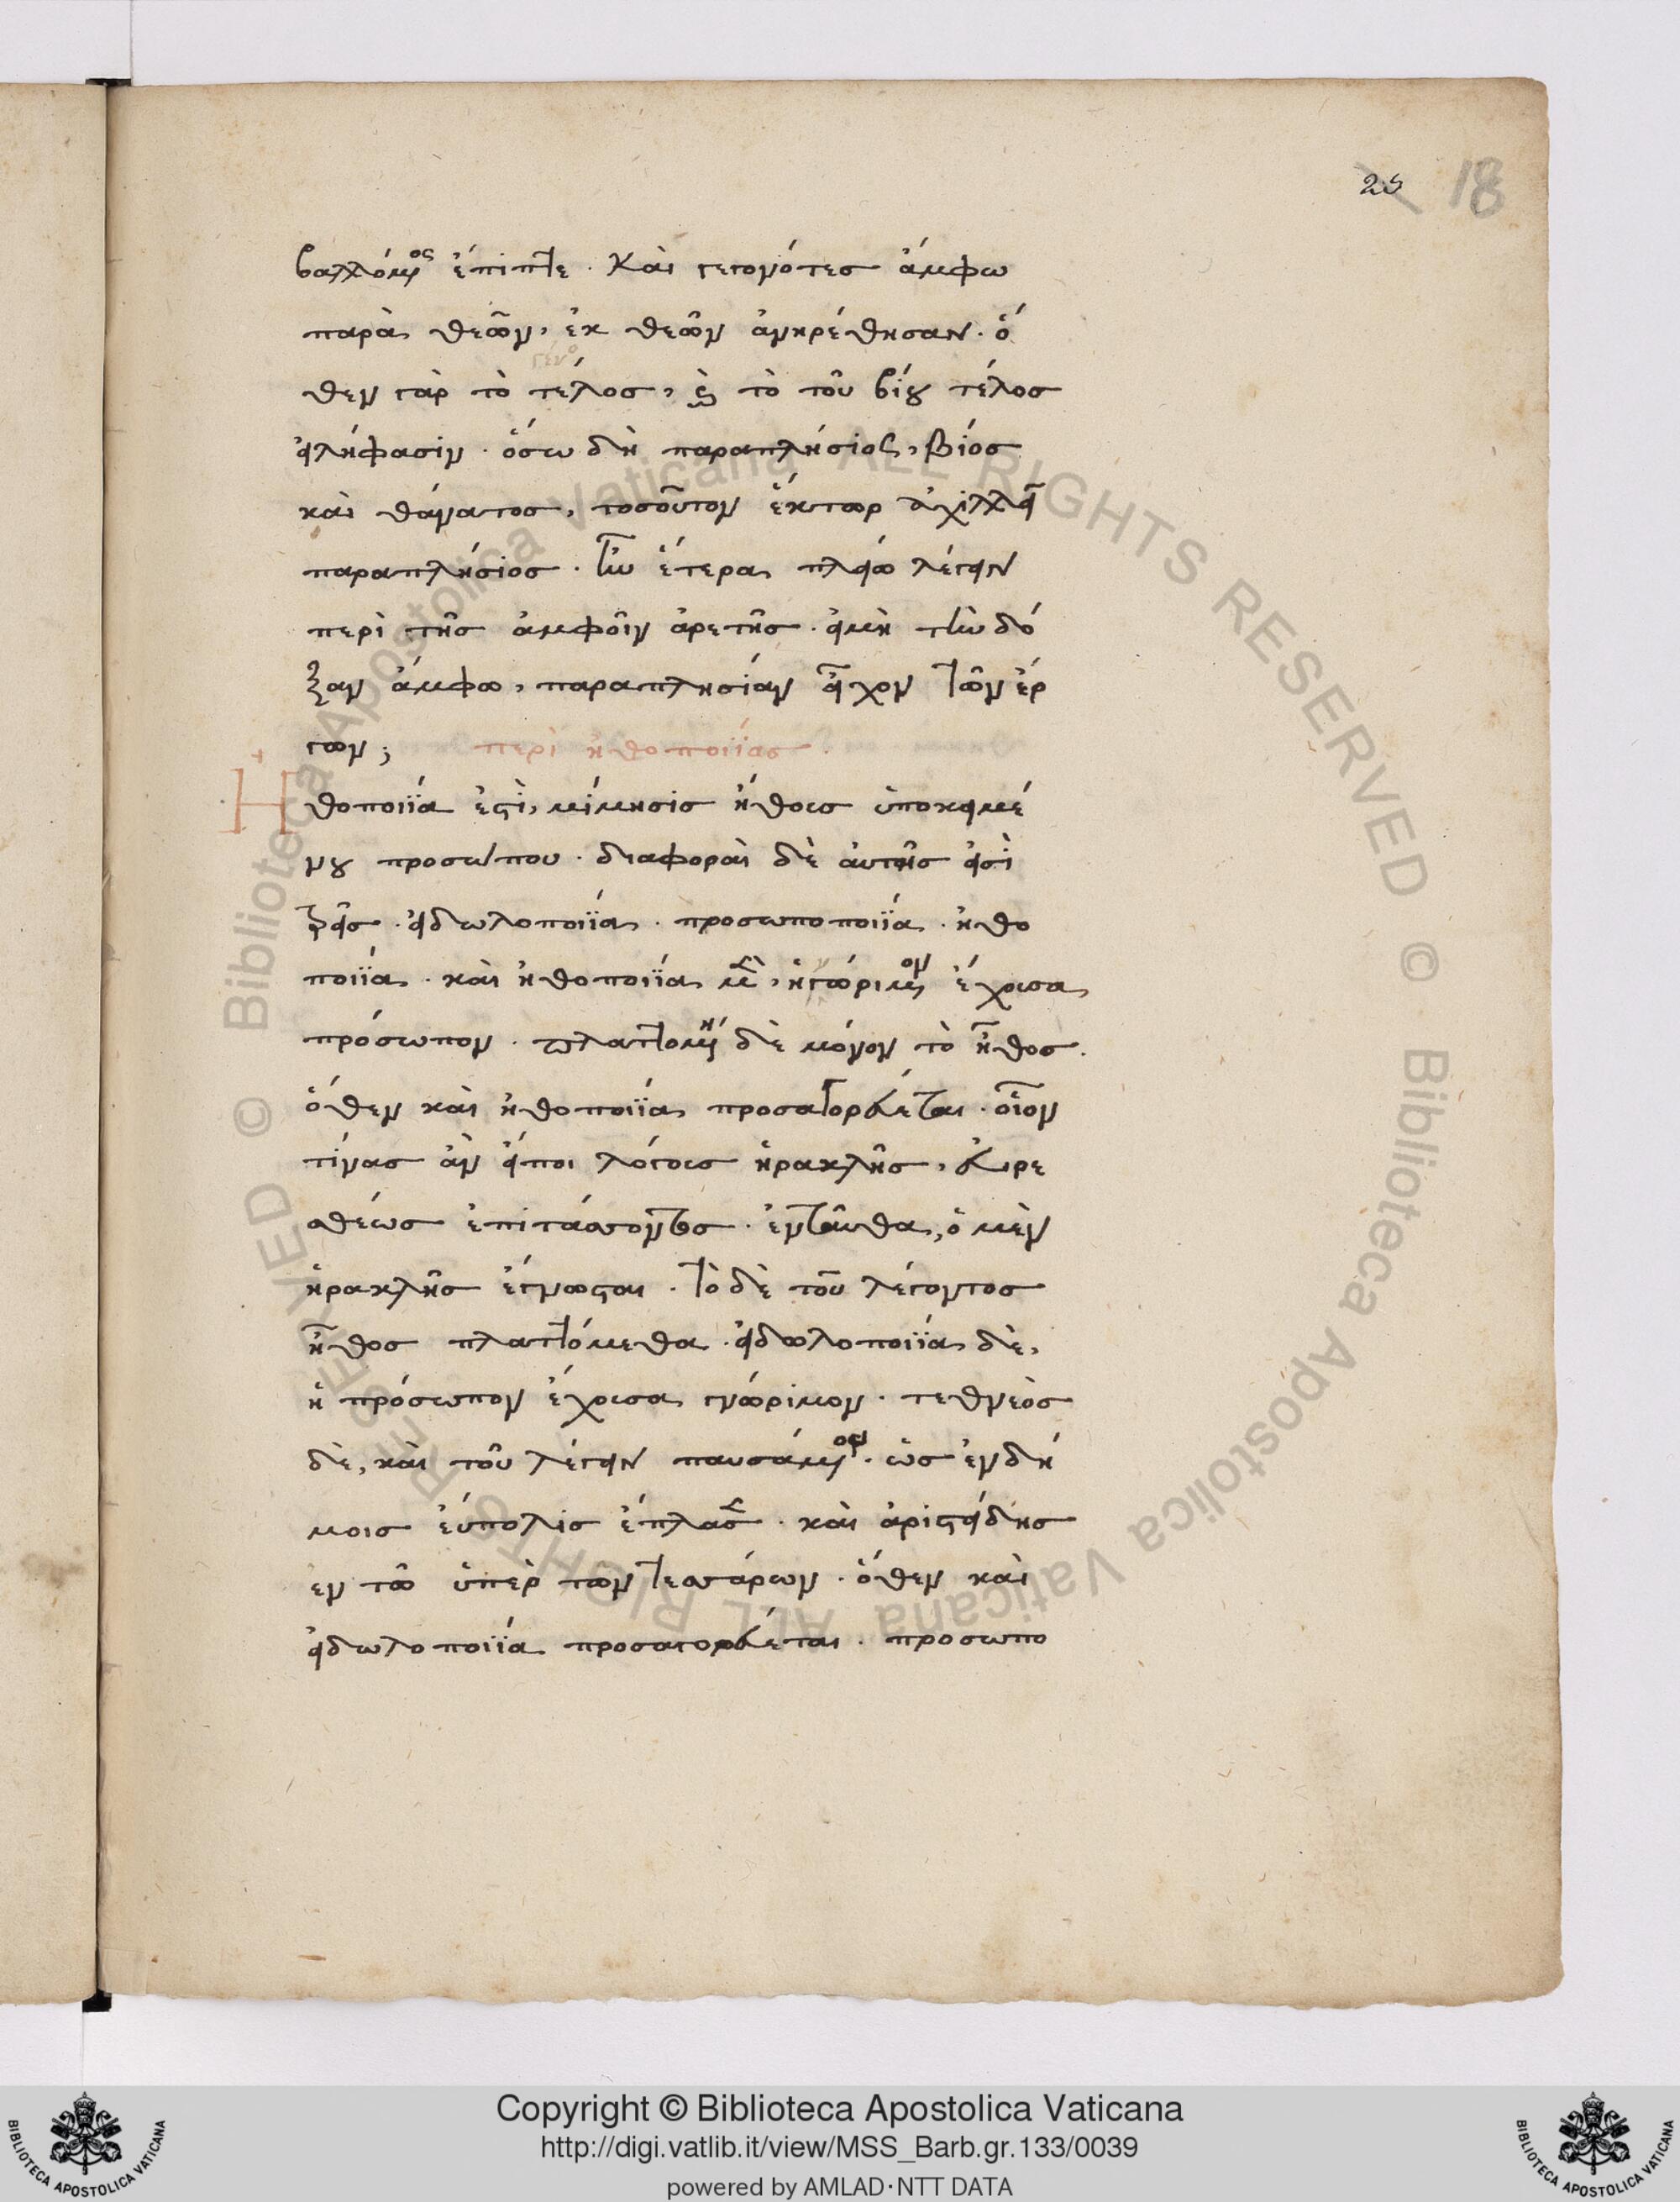 25 18
βαλλόμενος ἔπιπτε. Καὶ γεγονότες ἄμφω
παρὰ θεῶν, ἐκ θεῶν ἀνῃρέθησαν. ὅ
γένο
θεν γὰρ τὸ τέλος, καὶ τὸ τοῦ βίου τέλος
εἰλήφασιν. ὅσω δὴ παραπλήσιος, βίος
καὶ θάνατος, τοσοῦτον ἕκτωρ ἀχιλλεῖ
παραπλήσιος. ἦν ἕτερα πλείω λέγειν
περὶ τῆς ἀμφοῖν ἀρετῆς. εἰμὴ τὴν δό
ξαν ἄμφω, παραπλησίαν εἶχον τῶν ἔρ
γων; περὶ ἠθοποιΐας.
Ἠθοποιΐα ἐστὶ, μίμησις ἤθους ὑποκειμέ
νου προσώπου. διαφοραὶ δὲ αὐτῆς εἰσὶ
τρεῖς. εἰδωλοποιΐα. προσωποποιΐα. ἠθο
ποιΐα. καὶ ἠθοποιΐα μὲν, ἡ γνώριμον ἔχουσα
πρόσωπον. πλαττομένη δὲ μόνον τὸ ἦθος.
ὅθεν καὶ ἠθοποιΐα προσαγορεύεται. οἷον
τίνας ἂν εἴποι λόγους ἡρακλῆς, εὐρυ
σθέως ἐπιτάττοντος. ἐνταῦθα, ὁ μὲν
ἡρακλῆς ἔγνωσται. τὸ δὲ τοῦ λέγοντος
ἦθος πλαττόμεθα. εἰδωλοποιΐα δὲ,
ἡ πρόσωπον ἔχουσα γνώριμον. τεθνεὸς
δὲ, καὶ τοῦ λέγειν παυσάμενον. ὡς ἐν δή
μοις εὔπολις ἔπλασεν. καὶ ἀριστείδης
ἐν τῶ ὑπὲρ τῶν τεσσάρων. ὅθεν καὶ
εἰδωλοποιΐα προσαγορεύεται. προσωπο
Copyright © Biblioteca Apostolica Vaticana
http://digi.vatlib.it/view/MSS_Barb.gr.133/0039
powered by AMLAD·NTT DATA